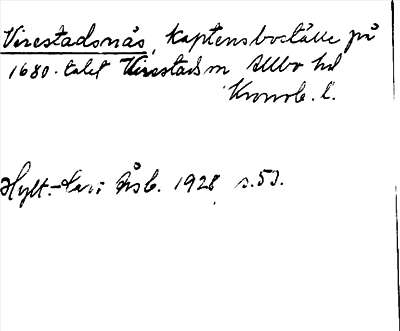 Virestadsnäs, kaptensboställe på
1680-talet Virestads sn Allbo hd
Kronob. l.
Hylt.-Cav. Årsb. 1928 s. 53.